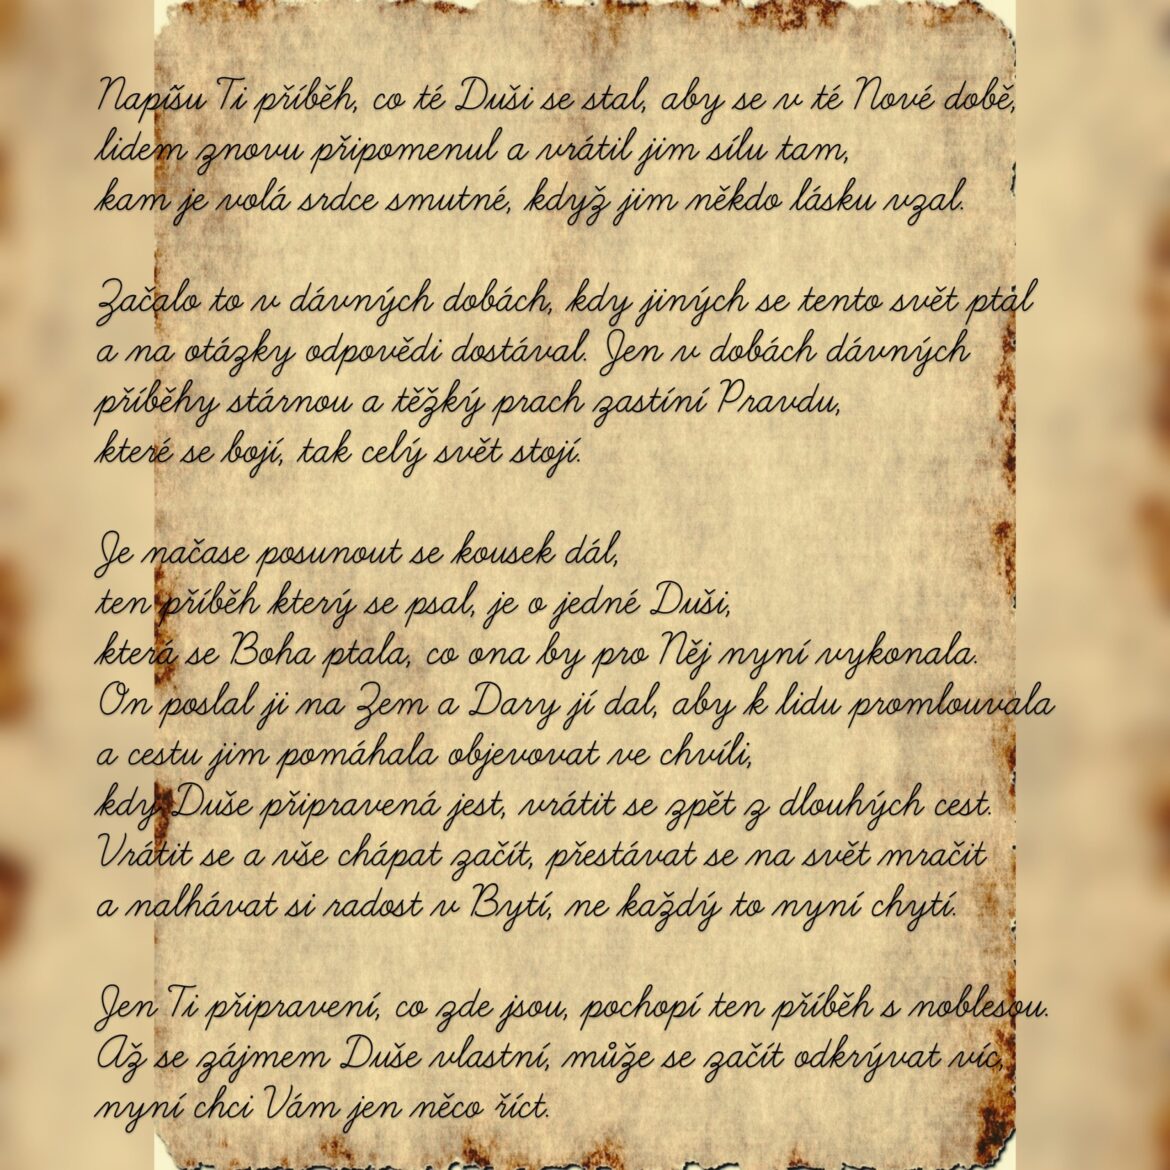 Napíšu Ti příběh, co té Duši se stal, aby se v té Nové době,
lidem znovu připomenul a vrátil jim sílu tam,
kam je volá srdce smutné, když jim někdo lásku vzal.
Začalo to v dávných dobách, kdy jiných se tento svět ptal
a na otázky odpovědi dostával. Jen v dobách dávných
příběhy stárnou a těžký prach zastíní Pravdu,
které se bojí, tak celý svět stojí.
Je načase posunout se kousek dál,
ten příběh který se psal, je o jedné Duši,
která se Boha ptala, co ona by pro Něj nyní vykonala.
On poslal ji na Zem a Dary jí dal, aby k lidu promlouvala
a cestu jim pomáhala objevovat ve chvíli,
kdy Duše připravená jest, vrátit se zpět z dlouhých cest.
Vrátit se a vše chápat začít, přestávat se na svět mračit
a nalhávat si radost v Bytí, ne každý to nyní chytí.
Jen Ti připravení, co zde jsou, pochopí ten příběh s noblesou.
Až se zájmem Duše vlastní, může se začít odkrývat víc,
nyní chci Vám jen něco říct.